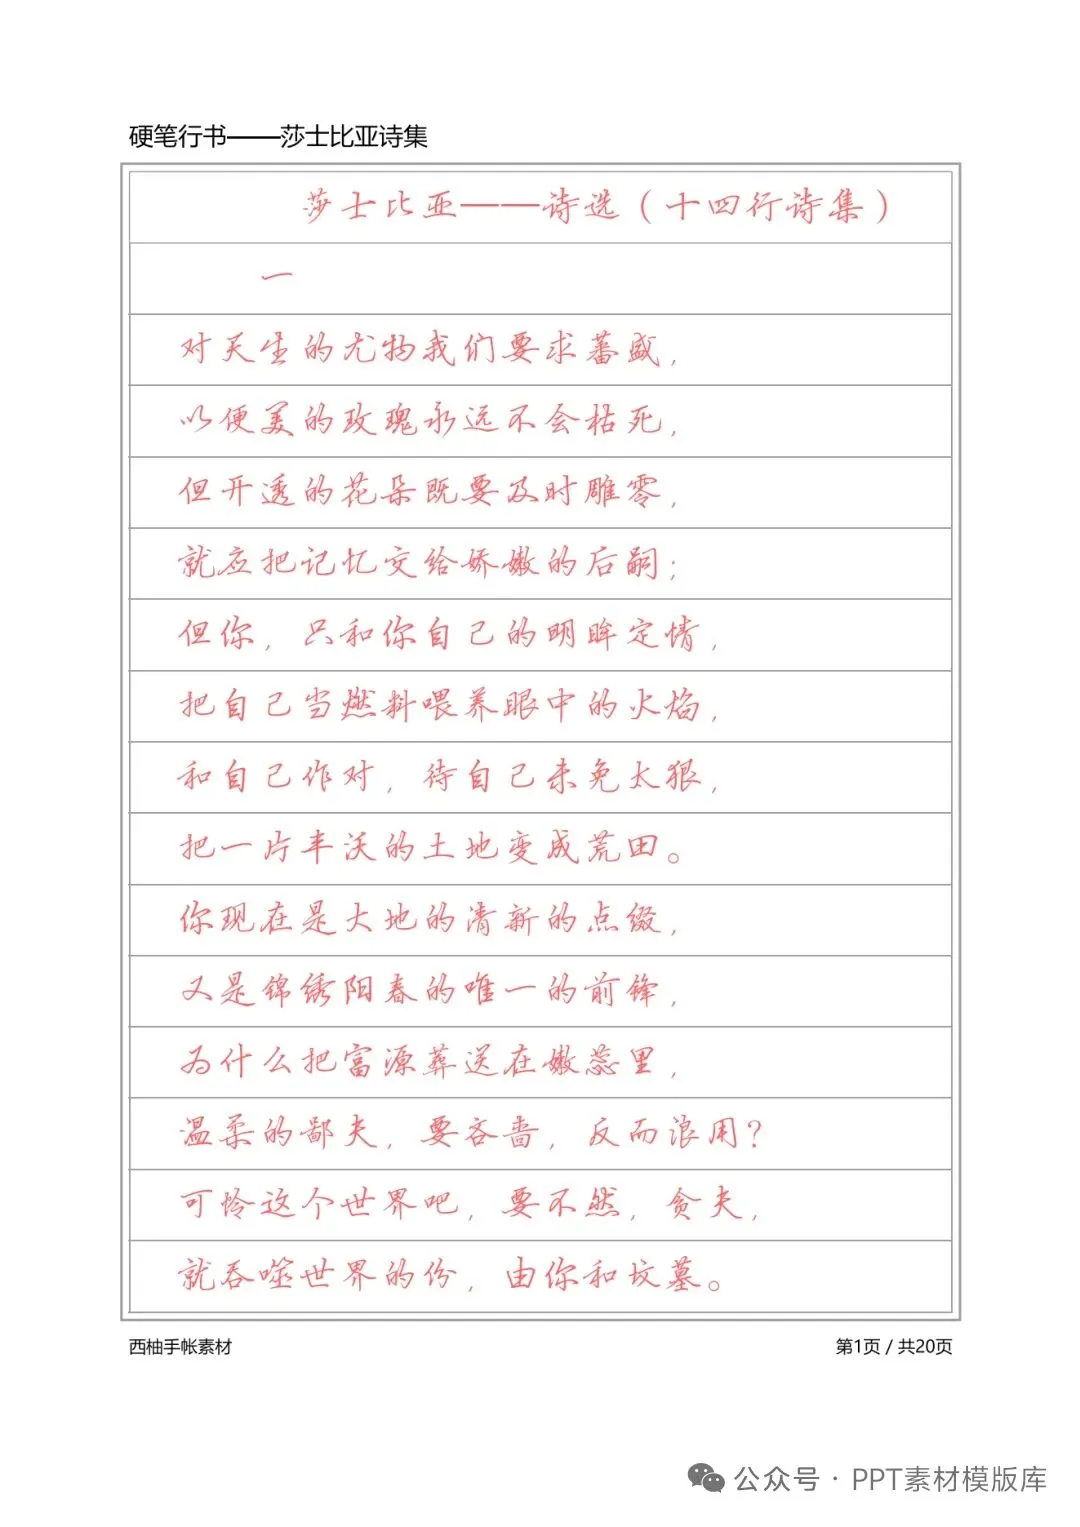 硬笔行书——莎士比亚诗集
莎士比亚——诗选（十四行诗集）
一
对天生的尤物我们要求蕃盛，
以便美的玫瑰永远不会枯死，
但开透的花朵既要及时雕零，
就应把记忆交给娇嫩的后嗣；
但你，只和你自己的明眸定情，
把自己当燃料喂养眼中的火焰，
和自己作对，待自己未免太狠，
把一片丰沃的土地变成荒田。
你现在是大地的清新的点缀，
又是锦绣阳春的唯一的前锋，
为什么把富源葬送在嫩蕊里，
温柔的鄙夫，要吝啬，反而浪用？
可怜这个世界吧，要不然，贪夫，
就吞噬世界的份，由你和坟墓。
西柚手帐素材
第1页 / 共20页
公众号 · PPT素材模版库